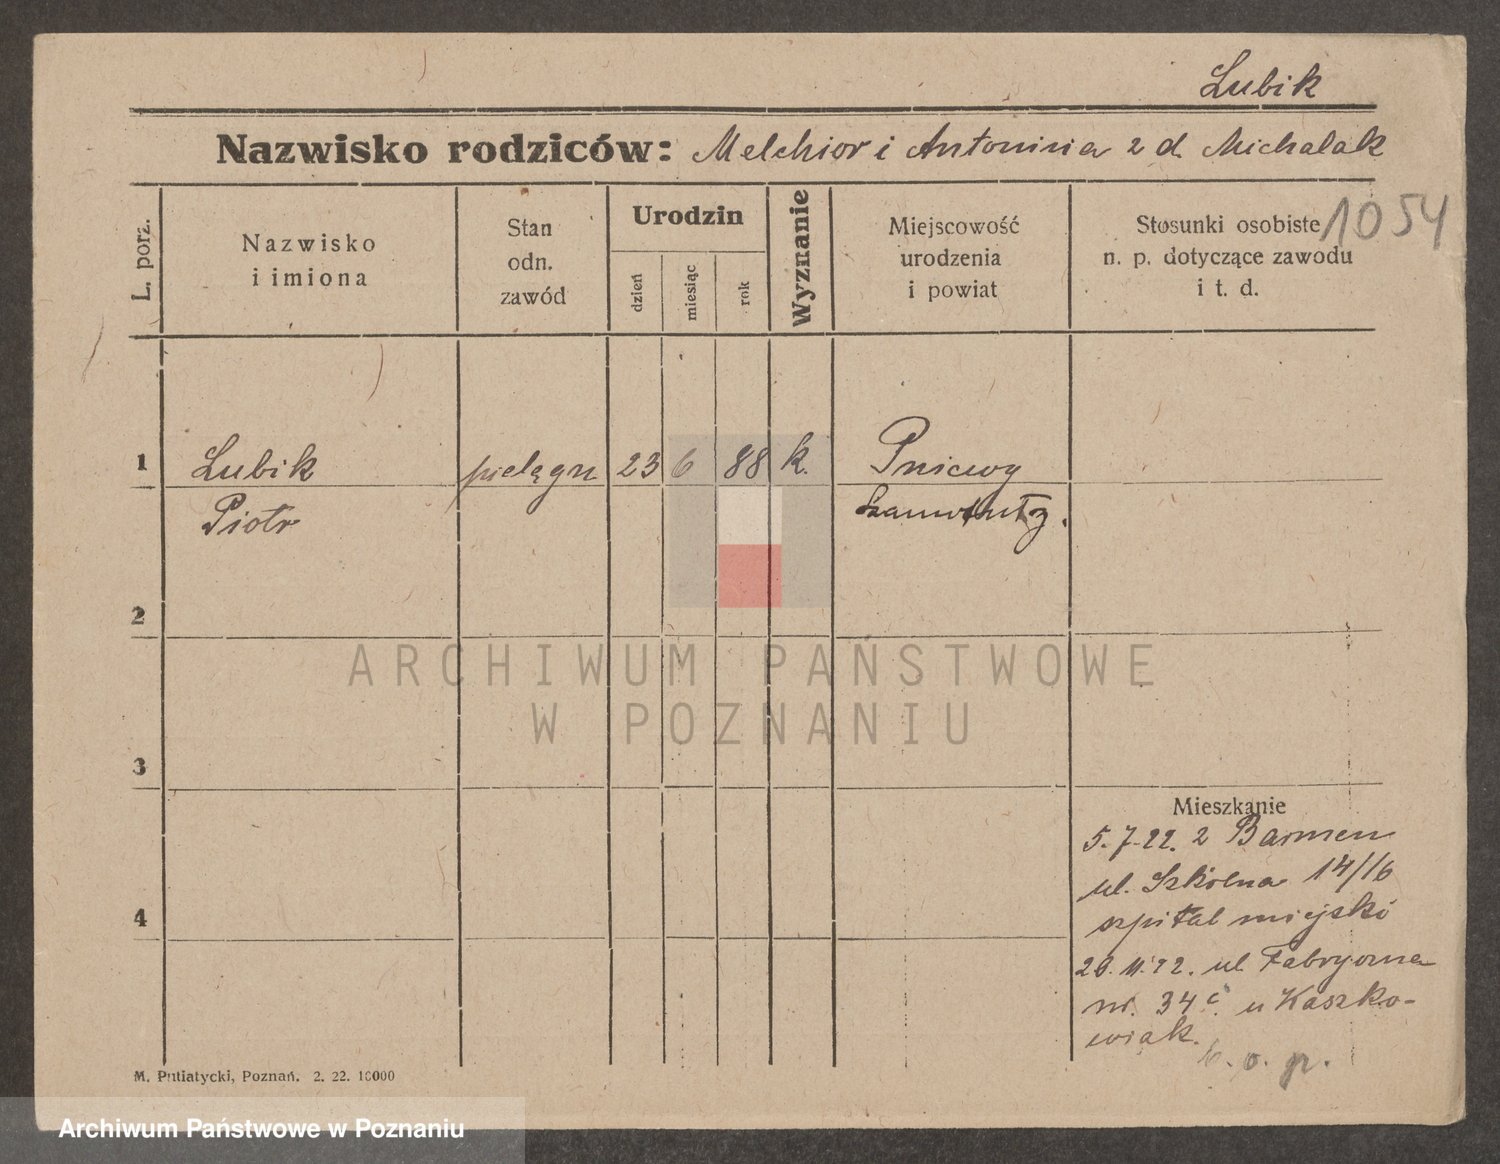 Lubik
Nazwisko rodziców: Melchior i Antonina z d. Michalak
1054
L. porz.
Nazwisko
i imiona
Stan
odn.
zawód
Urodzin
dzień
miesiąc
rok
Wyznanie
Miejscowość
urodzenia
i powiat
Stosunki osobiste
n. p. dotyczące zawodu
i t. d.
1
Lubik
Piotr
pielęgn
23
6
88
k.
Pniewy
Szamotuły.
2
3
4
Mieszkanie
5.7.22. z Barmen
ul. Szkolna 14/16
szpital miejski
ul. Fabryczna
nr. 34 c. u Kaszko-
wiak.
b. o. p.
M. Putiatycki, Poznań. 2. 22. 10000
ARCHIWUM PAŃSTWOWE
W POZNANIU
Archiwum Państwowe w Poznaniu